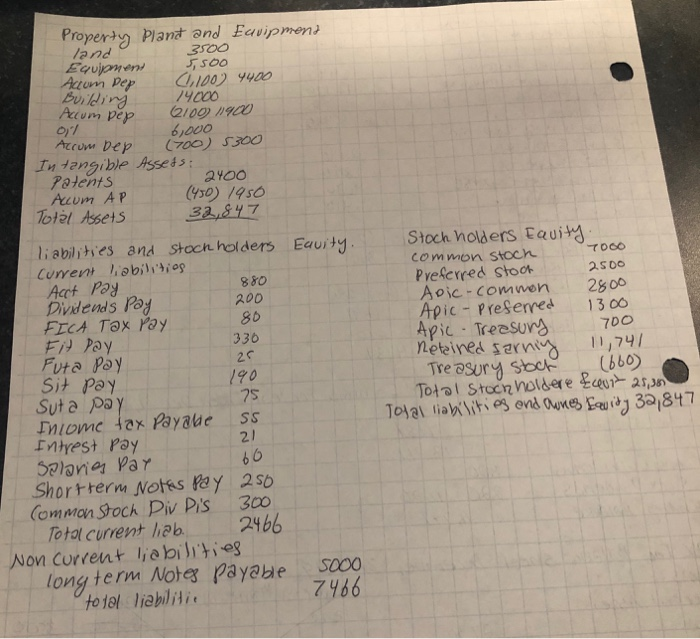 Property Plant and Equipment
land 3500
Equipment 5,500
Accum Dep (1,100) 4400
Building 14000
Accum Dep (2100) 11900
Oil 6,000
Accum Dep (700) 5300
Intangible Assets:
Patents 2400
Accum AP (450) 1950
Total Assets 32,847
liabilities and Stockholders Equity.
Current liabilities
Acct Pay 880
Dividends Pay 200
FICA Tax Pay 80
Fit Pay 330
Futa Pay 25
Sit Pay 190
Suta Pay 75
Income tax Payable 55
Intrest Pay 21
Salaries Pay 60
Short term Notes Pay 250
Common Stock Div Dis 300
Total current liab. 2466
Non Current liabilities
long term Notes Payable 5000
total liabilitie 7466
Stock holders Equity.
common stock 7000
Preferred stock 2500
Apic - common 2800
Apic - Preferred 1300
Apic - Treasury 700
Reteined Earning 11,741
Treasury stock (660)
Total Stockholders Equit
Total liabilities and Ownes Equity 32,847